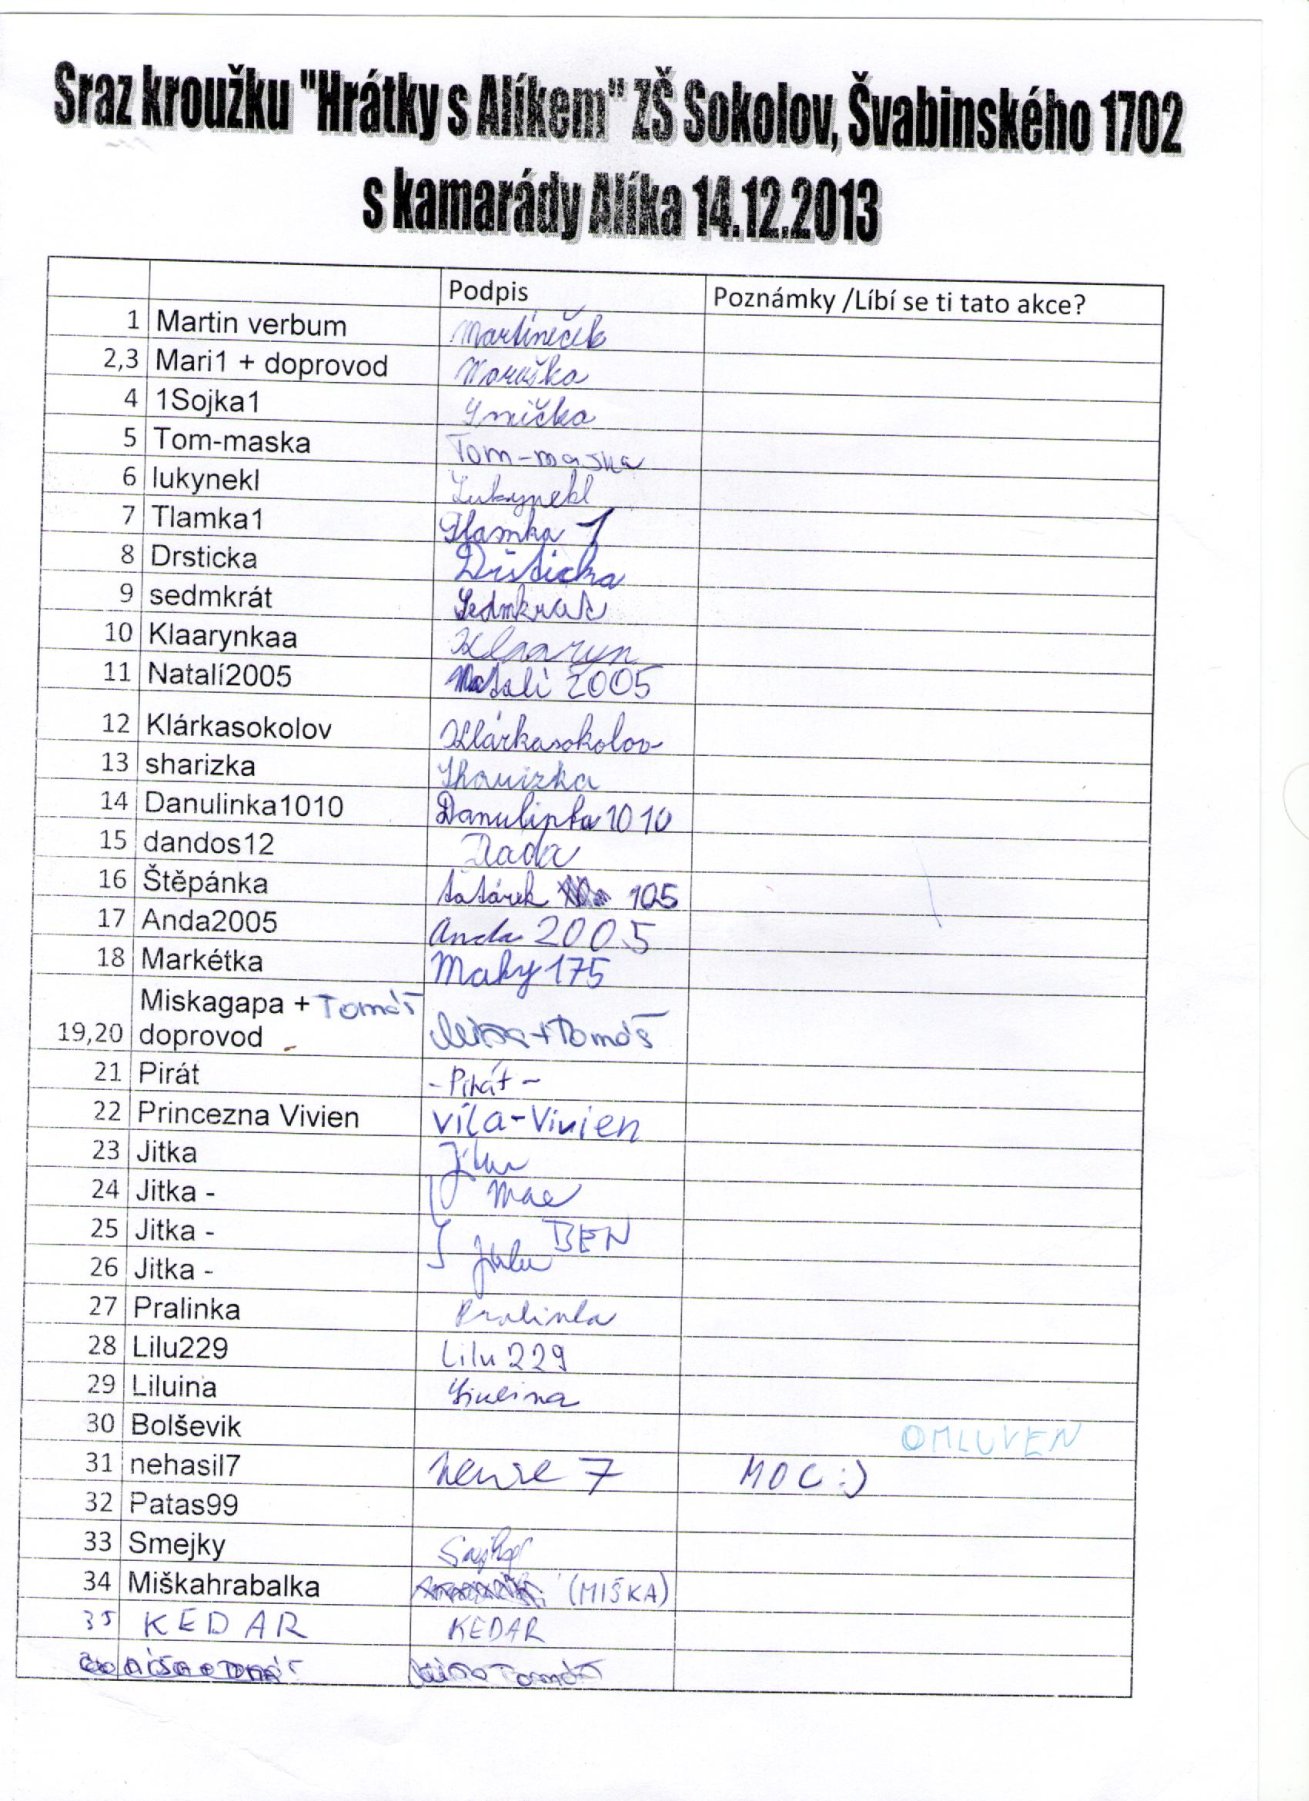 Sraz kroužku "Hrátky s Alíkem" ZŠ Sokolov, Švabinského 1702
s kamarády Alíka 14.12.2013
Podpis Poznámky /Líbí se ti tato akce?
1 Martin verbum Martíneček
2,3 Mari1 + doprovod Maruška
4 1Sojka1
5 Tom-maska Tom-maska
6 lukynekl Lukynekl
7 Tlamka1 Tlamka 1
8 Drsticka Drsticka
9 sedmkrát Sedmkrát
10 Klaarynkaa Klaaryn
11 Natalí2005 Natalí 2005
12 Klárkasokolov Klárkasokolov
13 sharizka Sharizka
14 Danulinka1010 Danulinka1010
15 dandos12 Dada
16 Štěpánka 105
17 Anda2005 Anda 2005
18 Markétka Maky175
Miskagapa + Tomáš
19,20 doprovod Míša+Tomáš
21 Pirát -Pirát-
22 Princezna Vivien víla-Vivien
23 Jitka
24 Jitka - Mae
25 Jitka - BEN
26 Jitka -
27 Pralinka Pralinka
28 Lilu229 Lilu 229
29 Liluina
30 Bolševik OMLUVEN
31 nehasil7 7 MOC :)
32 Patas99
33 Smejky
34 Miškahrabalka (MIŠKA)
35 KEDAR KEDAR
Míša Tomáš